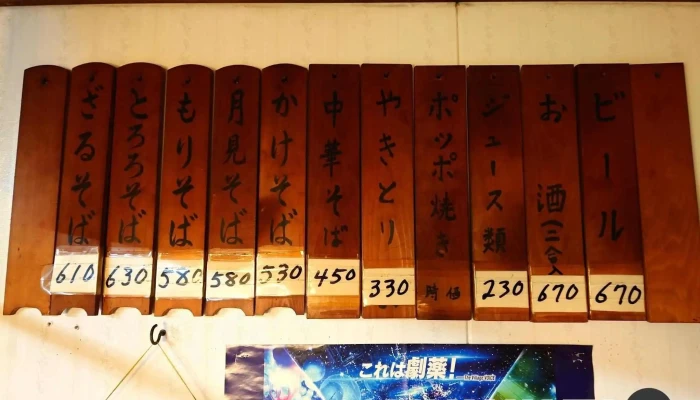 ビール
670
お酒(二合入
670
ジュース類
230
ポッポ焼き
時価
やきとり
330
中華そば
450
かけそば
530
月見そば
580
もりそば
580
とろろそば
630
ざるそば
610
これは劇薬!